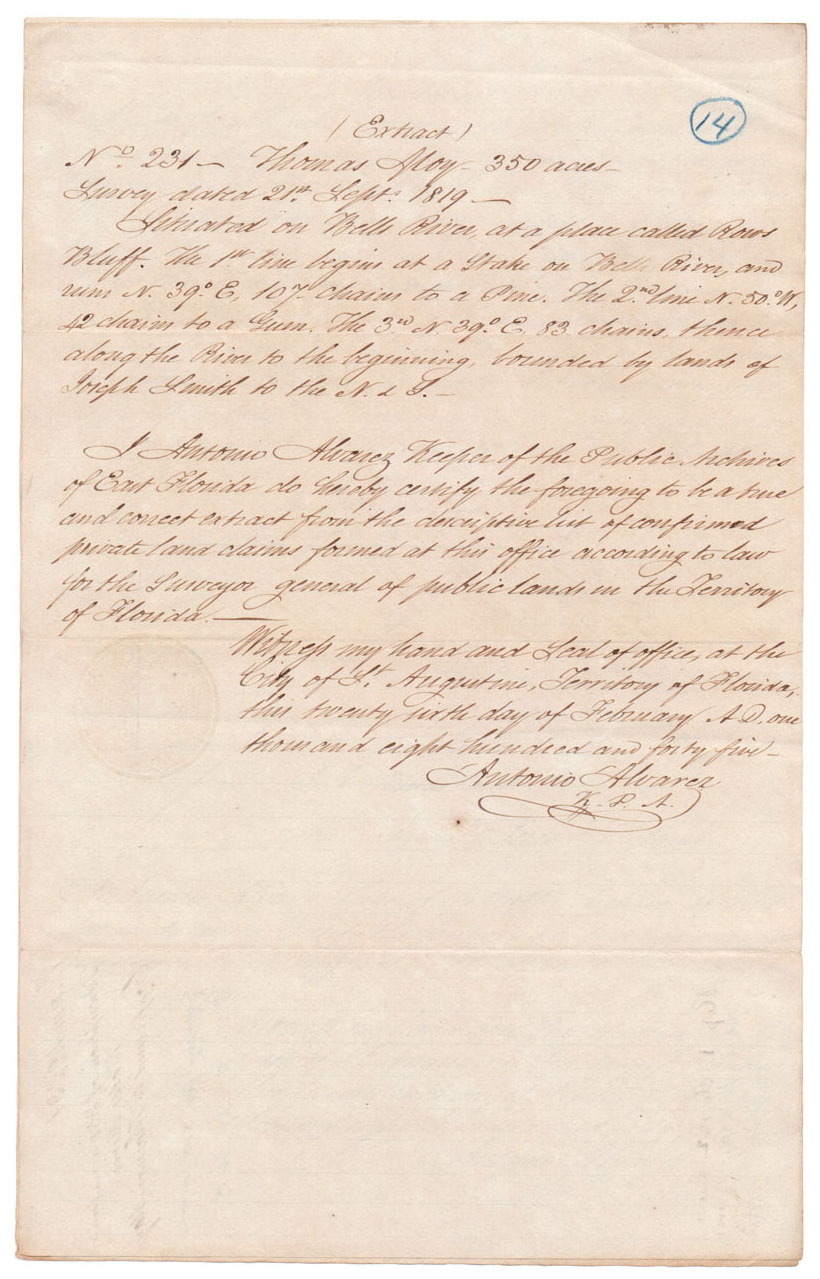 14
(Extract)
No. 231 - Thomas Aloy - 350 acres -
Survey dated 21st. Sept. 1819 -
Situated on Bells River, at a place called Rows
Bluff. The 1st line begins at a Stake on Bells River, and
runs N. 39.° E, 107 chains to a Pine. The 2.nd line N. 50.° W,
42 chains to a Gum. The 3.rd N 39.° E. 83. chains, thence
along the River to the beginning, bounded by lands of
Joseph Smith to the N. & S. -
I Antonio Alvarez Keeper of the Public Archives
of East Florida do hereby certify the foregoing to be a true
and correct extract from the descriptive list of confirmed
private land claims formed at this office according to law
for the Surveyor general of public lands in the Territory
of Florida. —
Witness my hand and Seal of office, at the
City of St. Augustine, Territory of Florida,
this twenty sixth day of February A.D. one
thousand eight hundred and forty five -
Antonio Alvarez
K. P. A.